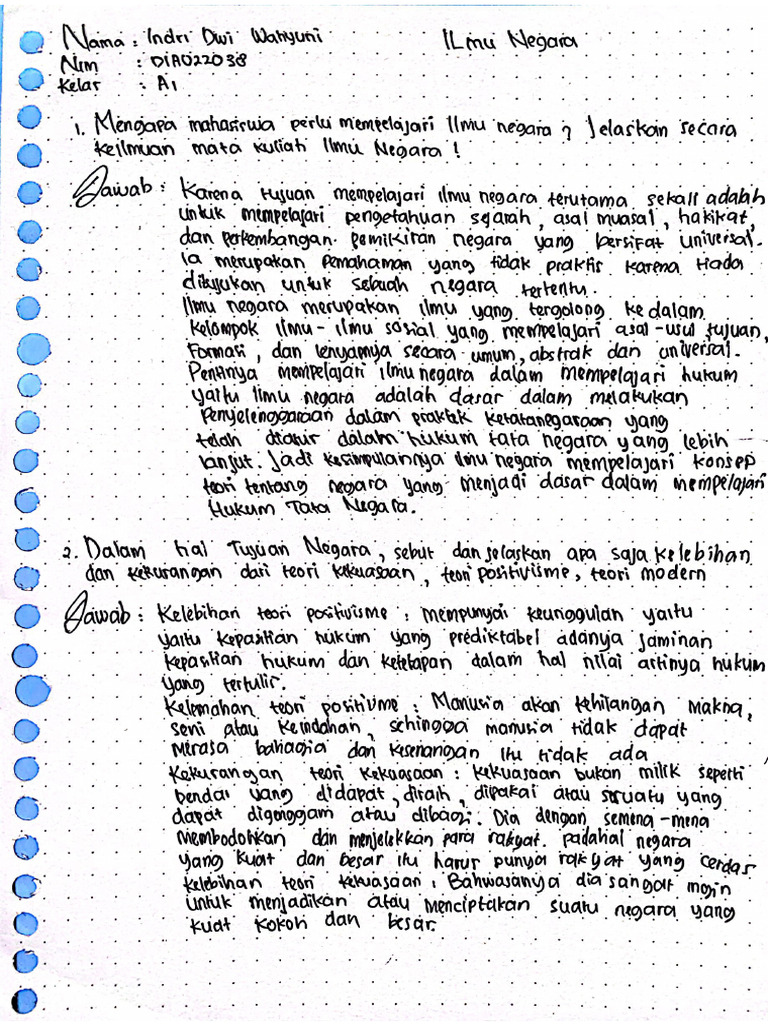 Nama : Indri Dwi Wahyuni Ilmu Negara
Nim : D1A022038
Kelas : A1
1. Mengapa mahasiswa perlu mempelajari Ilmu negara ? Jelaskan secara
keilmuan mata kuliah Ilmu Negara !
Jawab : Karena tujuan mempelajari ilmu negara terutama sekali adalah
untuk mempelajari pengetahuan sejarah, asal muasal, hakikat,
dan perkembangan pemikiran negara yang bersifat universal.
Ia merupakan pemahaman yang tidak praktis karena tiada
ditujukan untuk sebuah negara tertentu.
Ilmu negara merupakan ilmu yang tergolong kedalam
kelompok ilmu-ilmu sosial yang mempelajari asal-usul tujuan,
formasi, dan lenyapnya secara umum, abstrak dan universal.
Pentinya mempelajari ilmu negara dalam mempelajari hukum
yaitu ilmu negara adalah dasar dalam melakukan
Penyelenggaraan dalam praktek ketatanegaraan yang
telah diatur dalam hukum tata negara yang lebih
lanjut. Jadi kesimpulannya ilmu negara mempelajari konsep
teori tentang negara yang menjadi dasar dalam mempelajari
Hukum Tata Negara.
2. Dalam hal Tujuan Negara, sebut dan jelaskan apa saja kelebihan
dan kekurangan dari teori kekuasaan, teori positivisme, teori modern
Jawab : Kelebihan teori positivisme : mempunyai keunggulan yaitu
yaitu kepastian hukum yang prediktabel adanya jaminan
kepastian hukum dan ketetapan dalam hal nilai artinya hukum
yang tertulir.
Kelemahan teori positivme : Manusia akan kehilangan makna,
seni atau keindahan, sehingga manusia tidak dapat
merasa bahagia dan kesenangan itu tidak ada
Kekurangan teori kekuasaan : kekuasaan bukan milik seperti
bendar yang didapat, diraih, dipakai atau seruatu yang
dapat digenggam atau dibagi. Dia dengan semena-mena
membodohkan dan menjelekkan para rakyat. padahal negara
yang kuat dan besar itu harus punya rakyat yang cerdas
kelebihan teori kekuasaan : Bahwasanya dia sangat ingin
untuk menjadikan atau menciptakan suatu negara yang
kuat kokoh dan besar.